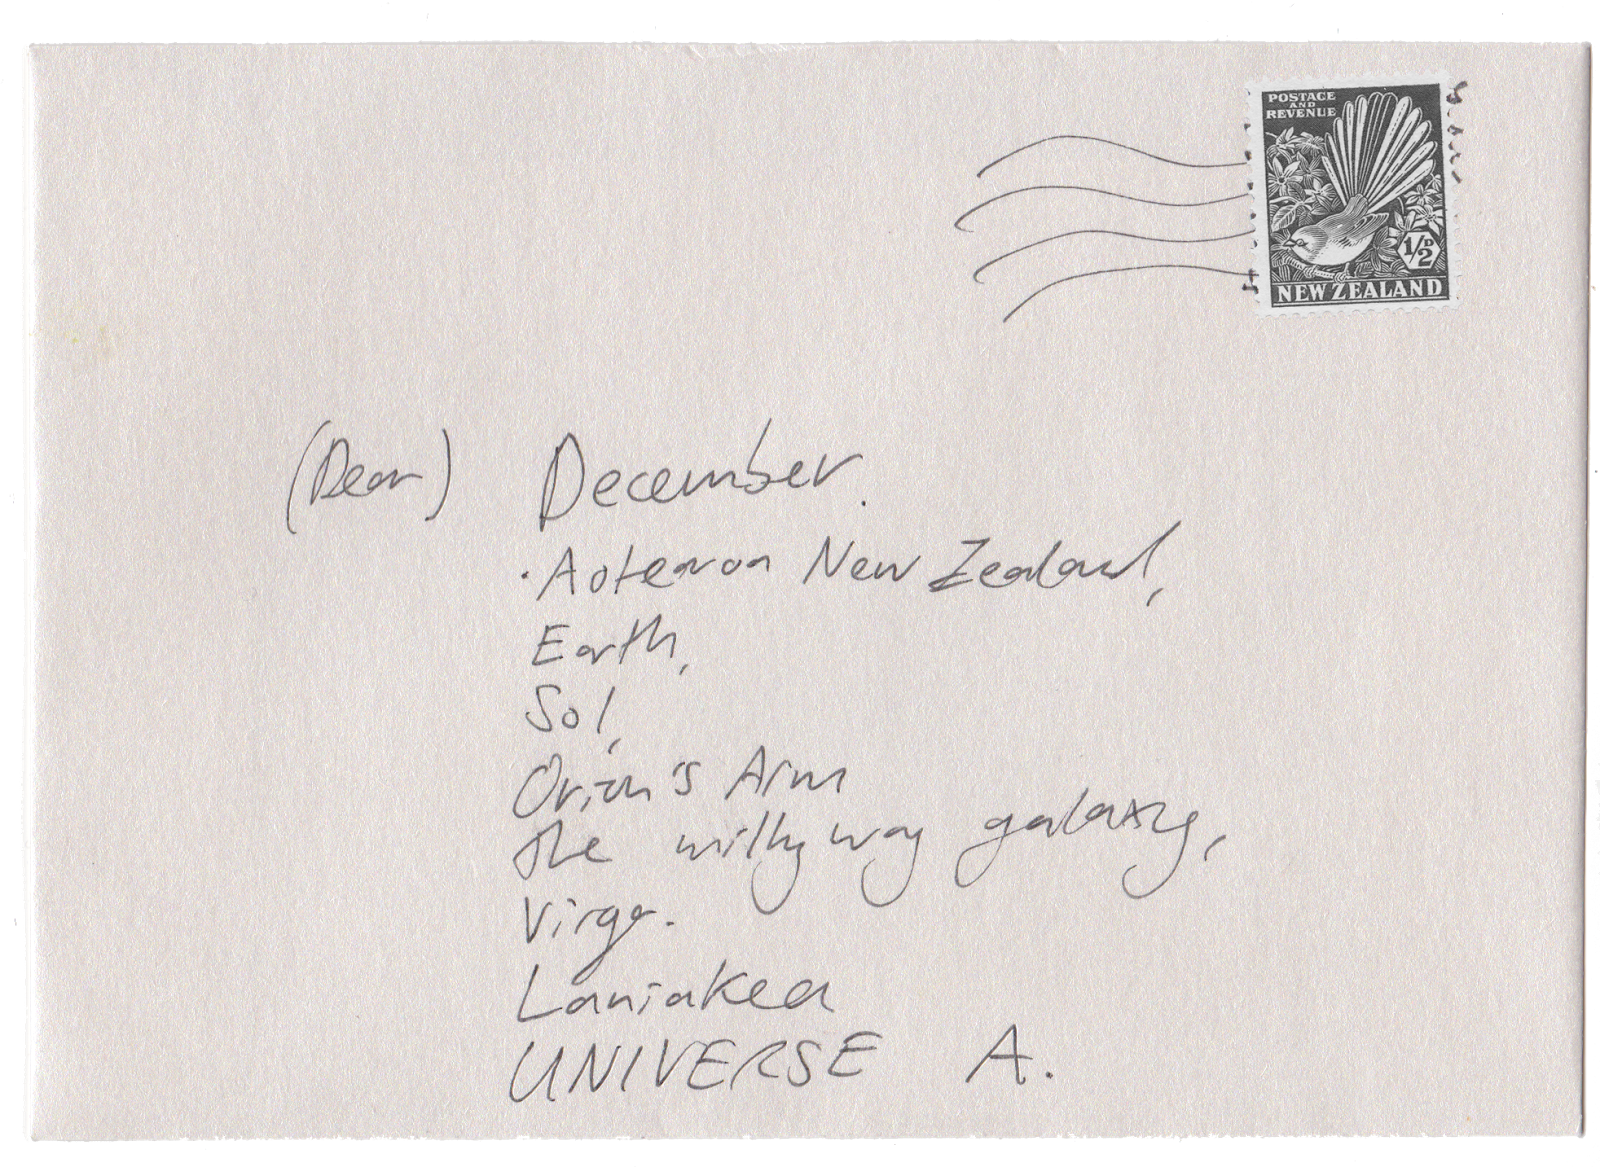 POSTAGE
AND
REVENUE
1/2D
NEW ZEALAND
(Dear) December.
Aotearoa New Zealand,
Earth,
Sol,
Orion's Arm
the milky way galaxy,
Virgo.
Laniakea
UNIVERSE A.